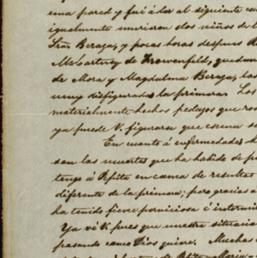 una pared y fui á dar al siguiente cua
igualmente murieron dos niños de l
Fran Beraza, y pocas horas despues R
McCartney de Frowenfeld, quedan
de Mora y Magdalena Beraza, las
muy disfigurada la primera. Los
materialmente hechos pedazos que ros
ya puede V. figurarse que escena se
En cuanto á enfermedades d
son las muertes que ha habido de fie
tengo á Pepita en cama de result
diferente de la primera; pero gracias a
ha tenido fiebre perniciosa é interm
Ya vé V. pues que nuestra situacio
pasando como Dios quiere. Muchas